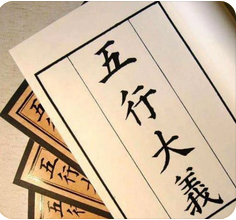 五行大義
五行大
五行
五行